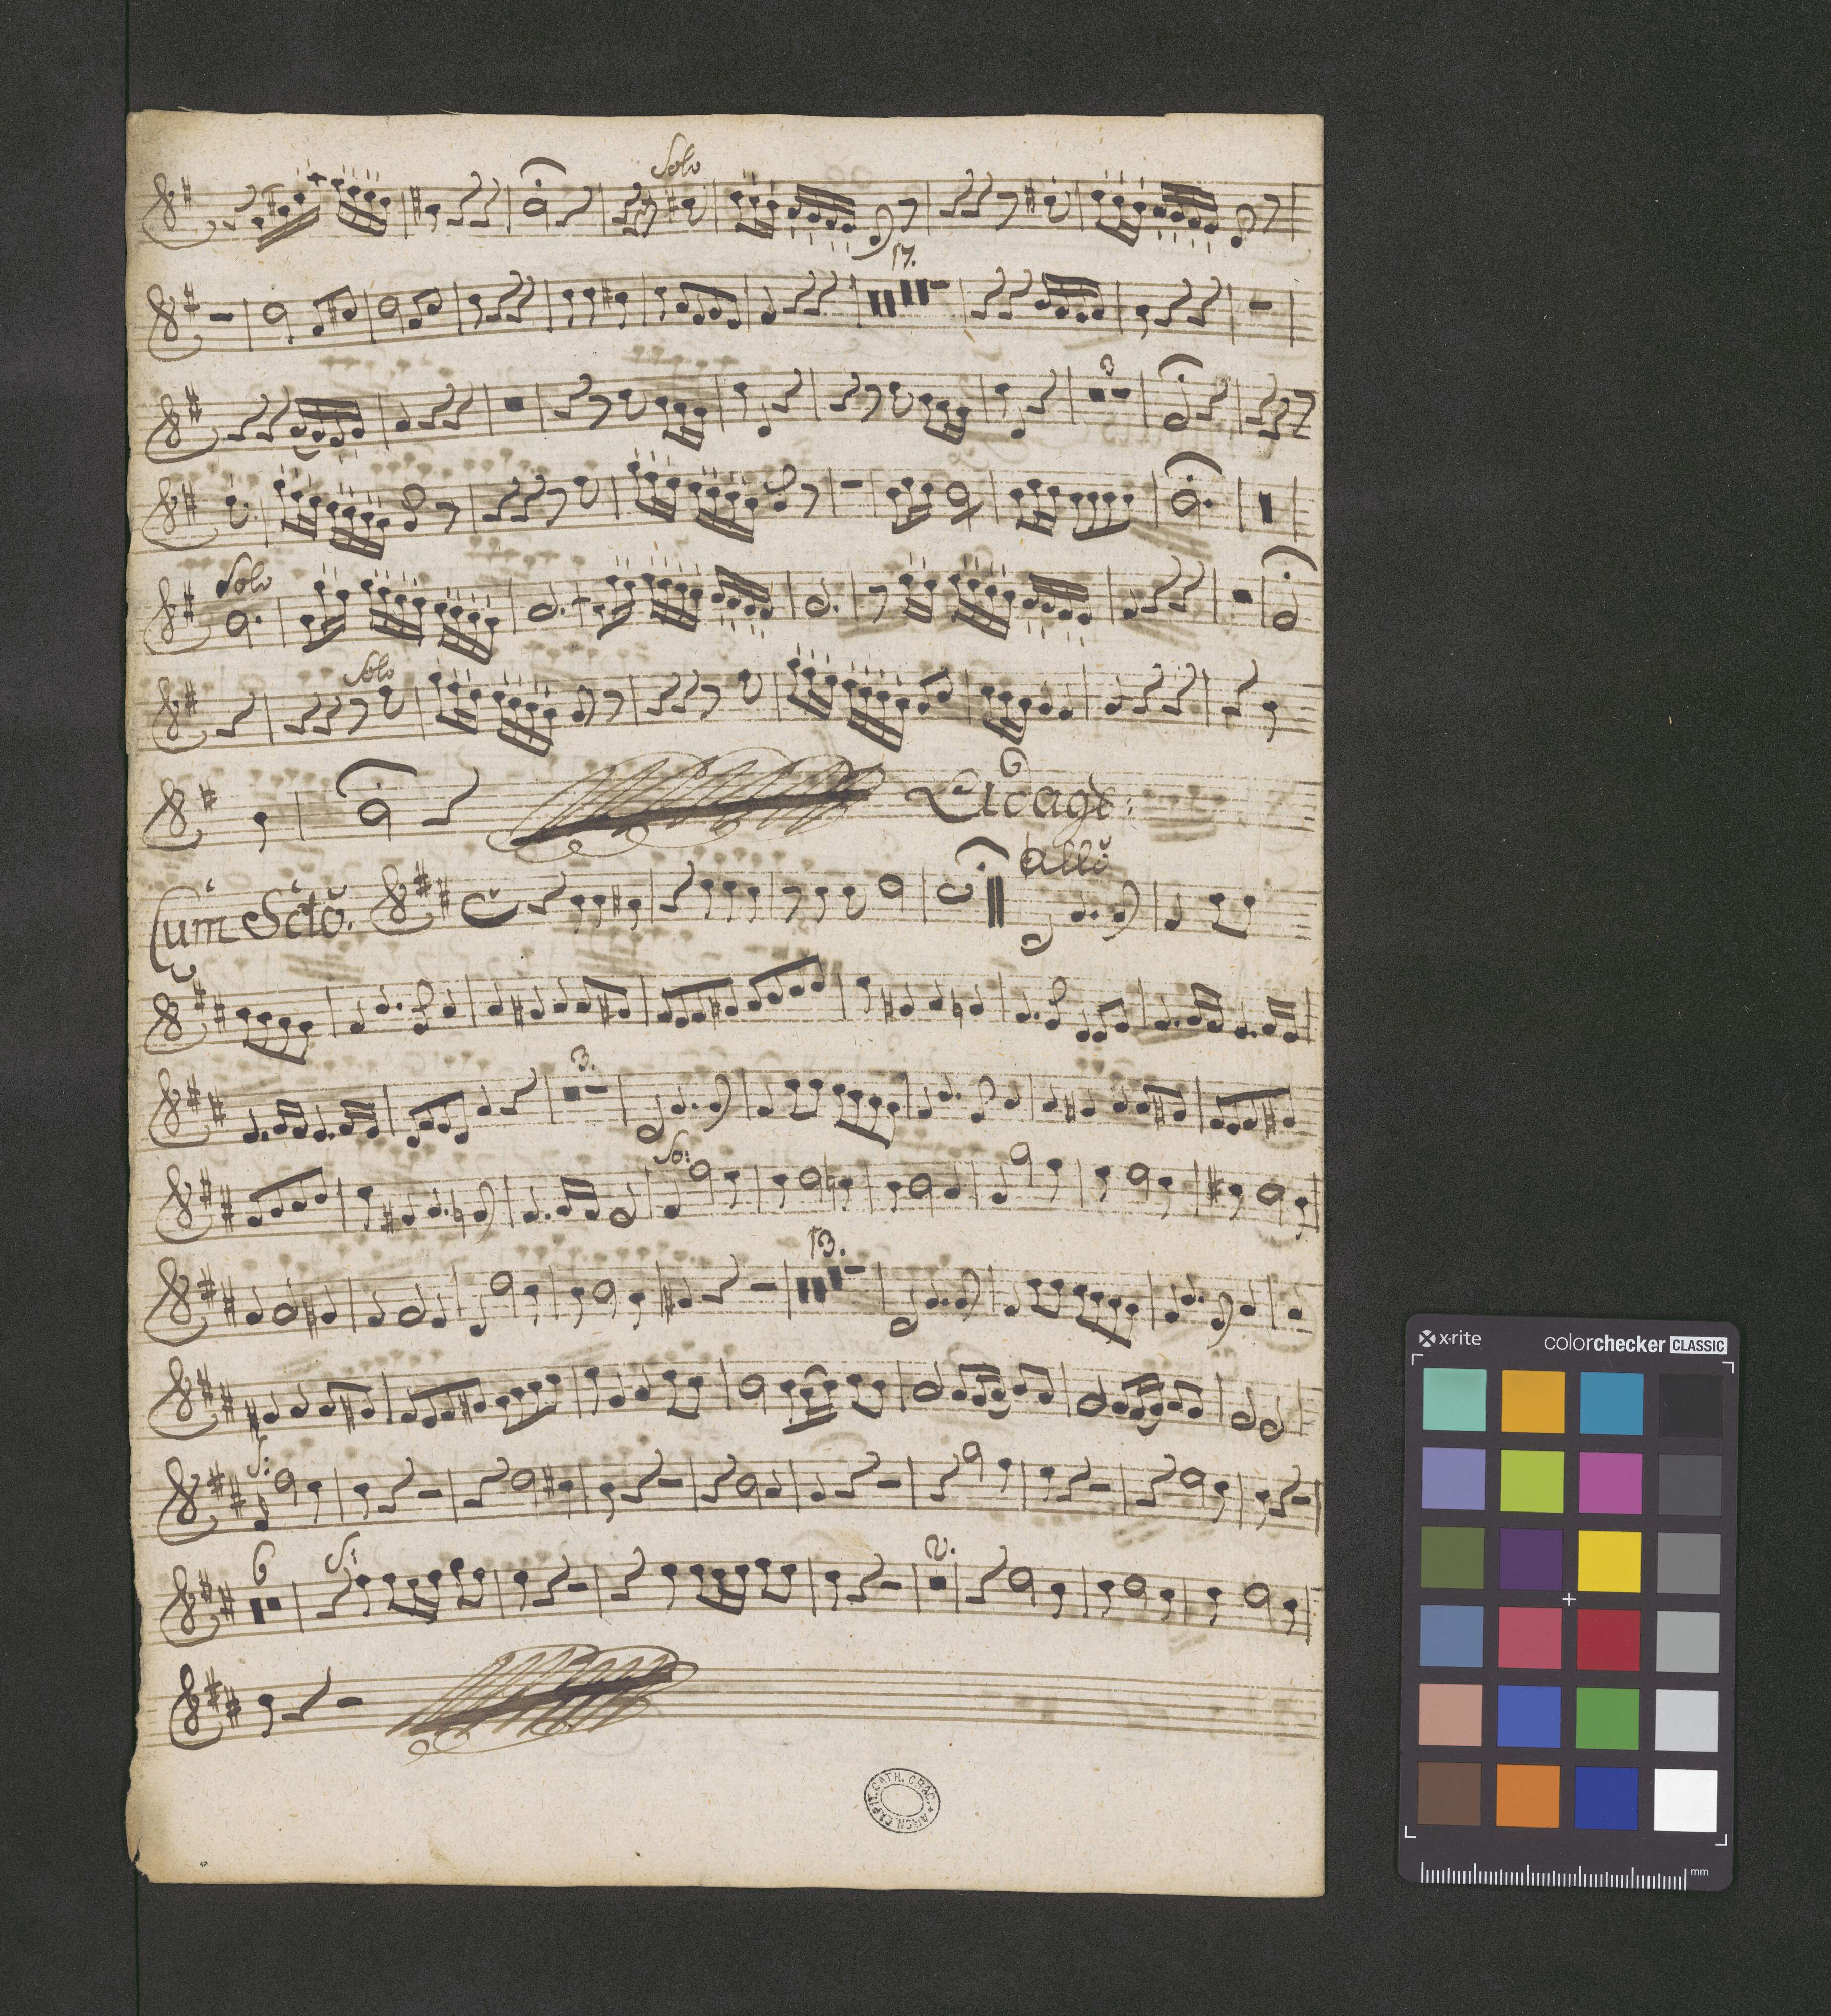 Solo
17.
3
Solo
Solo
Adagio:
Cum Scto.
allo
3.
So:
13.
S:
6 S: 2.
CAPIT. CATH. CRAC. * ARCH.
x·rite colorchecker CLASSIC
mm